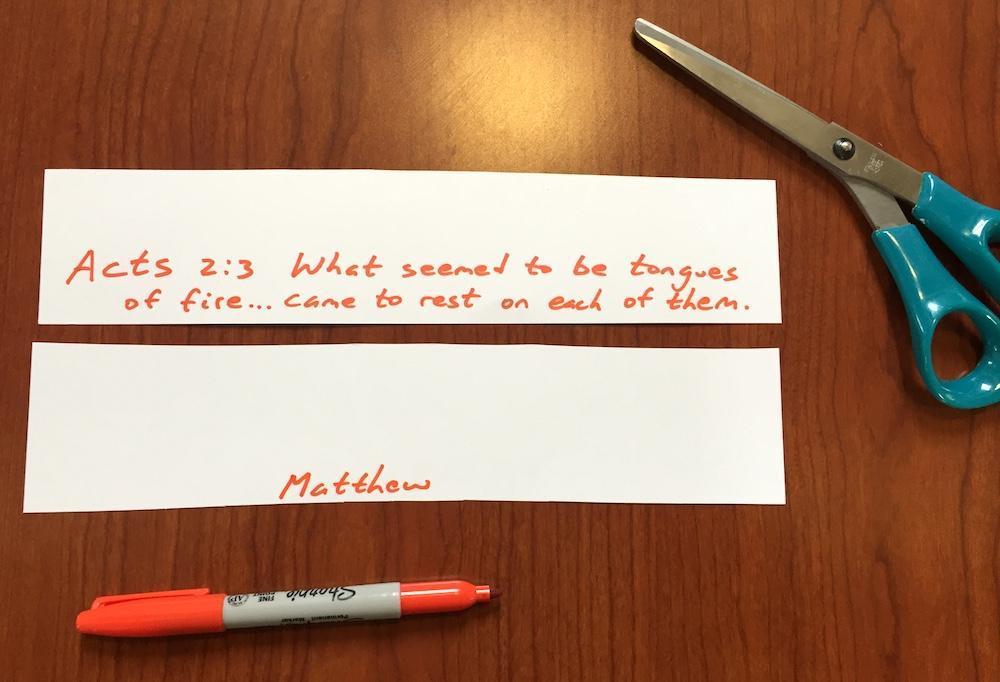 Acts 2:3 What seemed to be tongues
of fire... came to rest on each of them.
Matthew
Sharpie
FINE
POINT
Permanent Marker